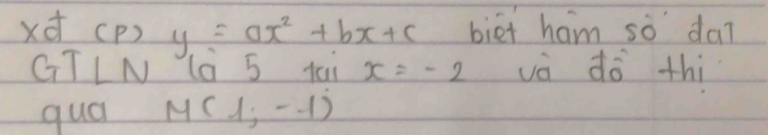 xđ (P) y = ax² + bx + c biết hàm số đạt
GTLN là 5 tại x = -2 và đồ thị
qua M(1; -1)